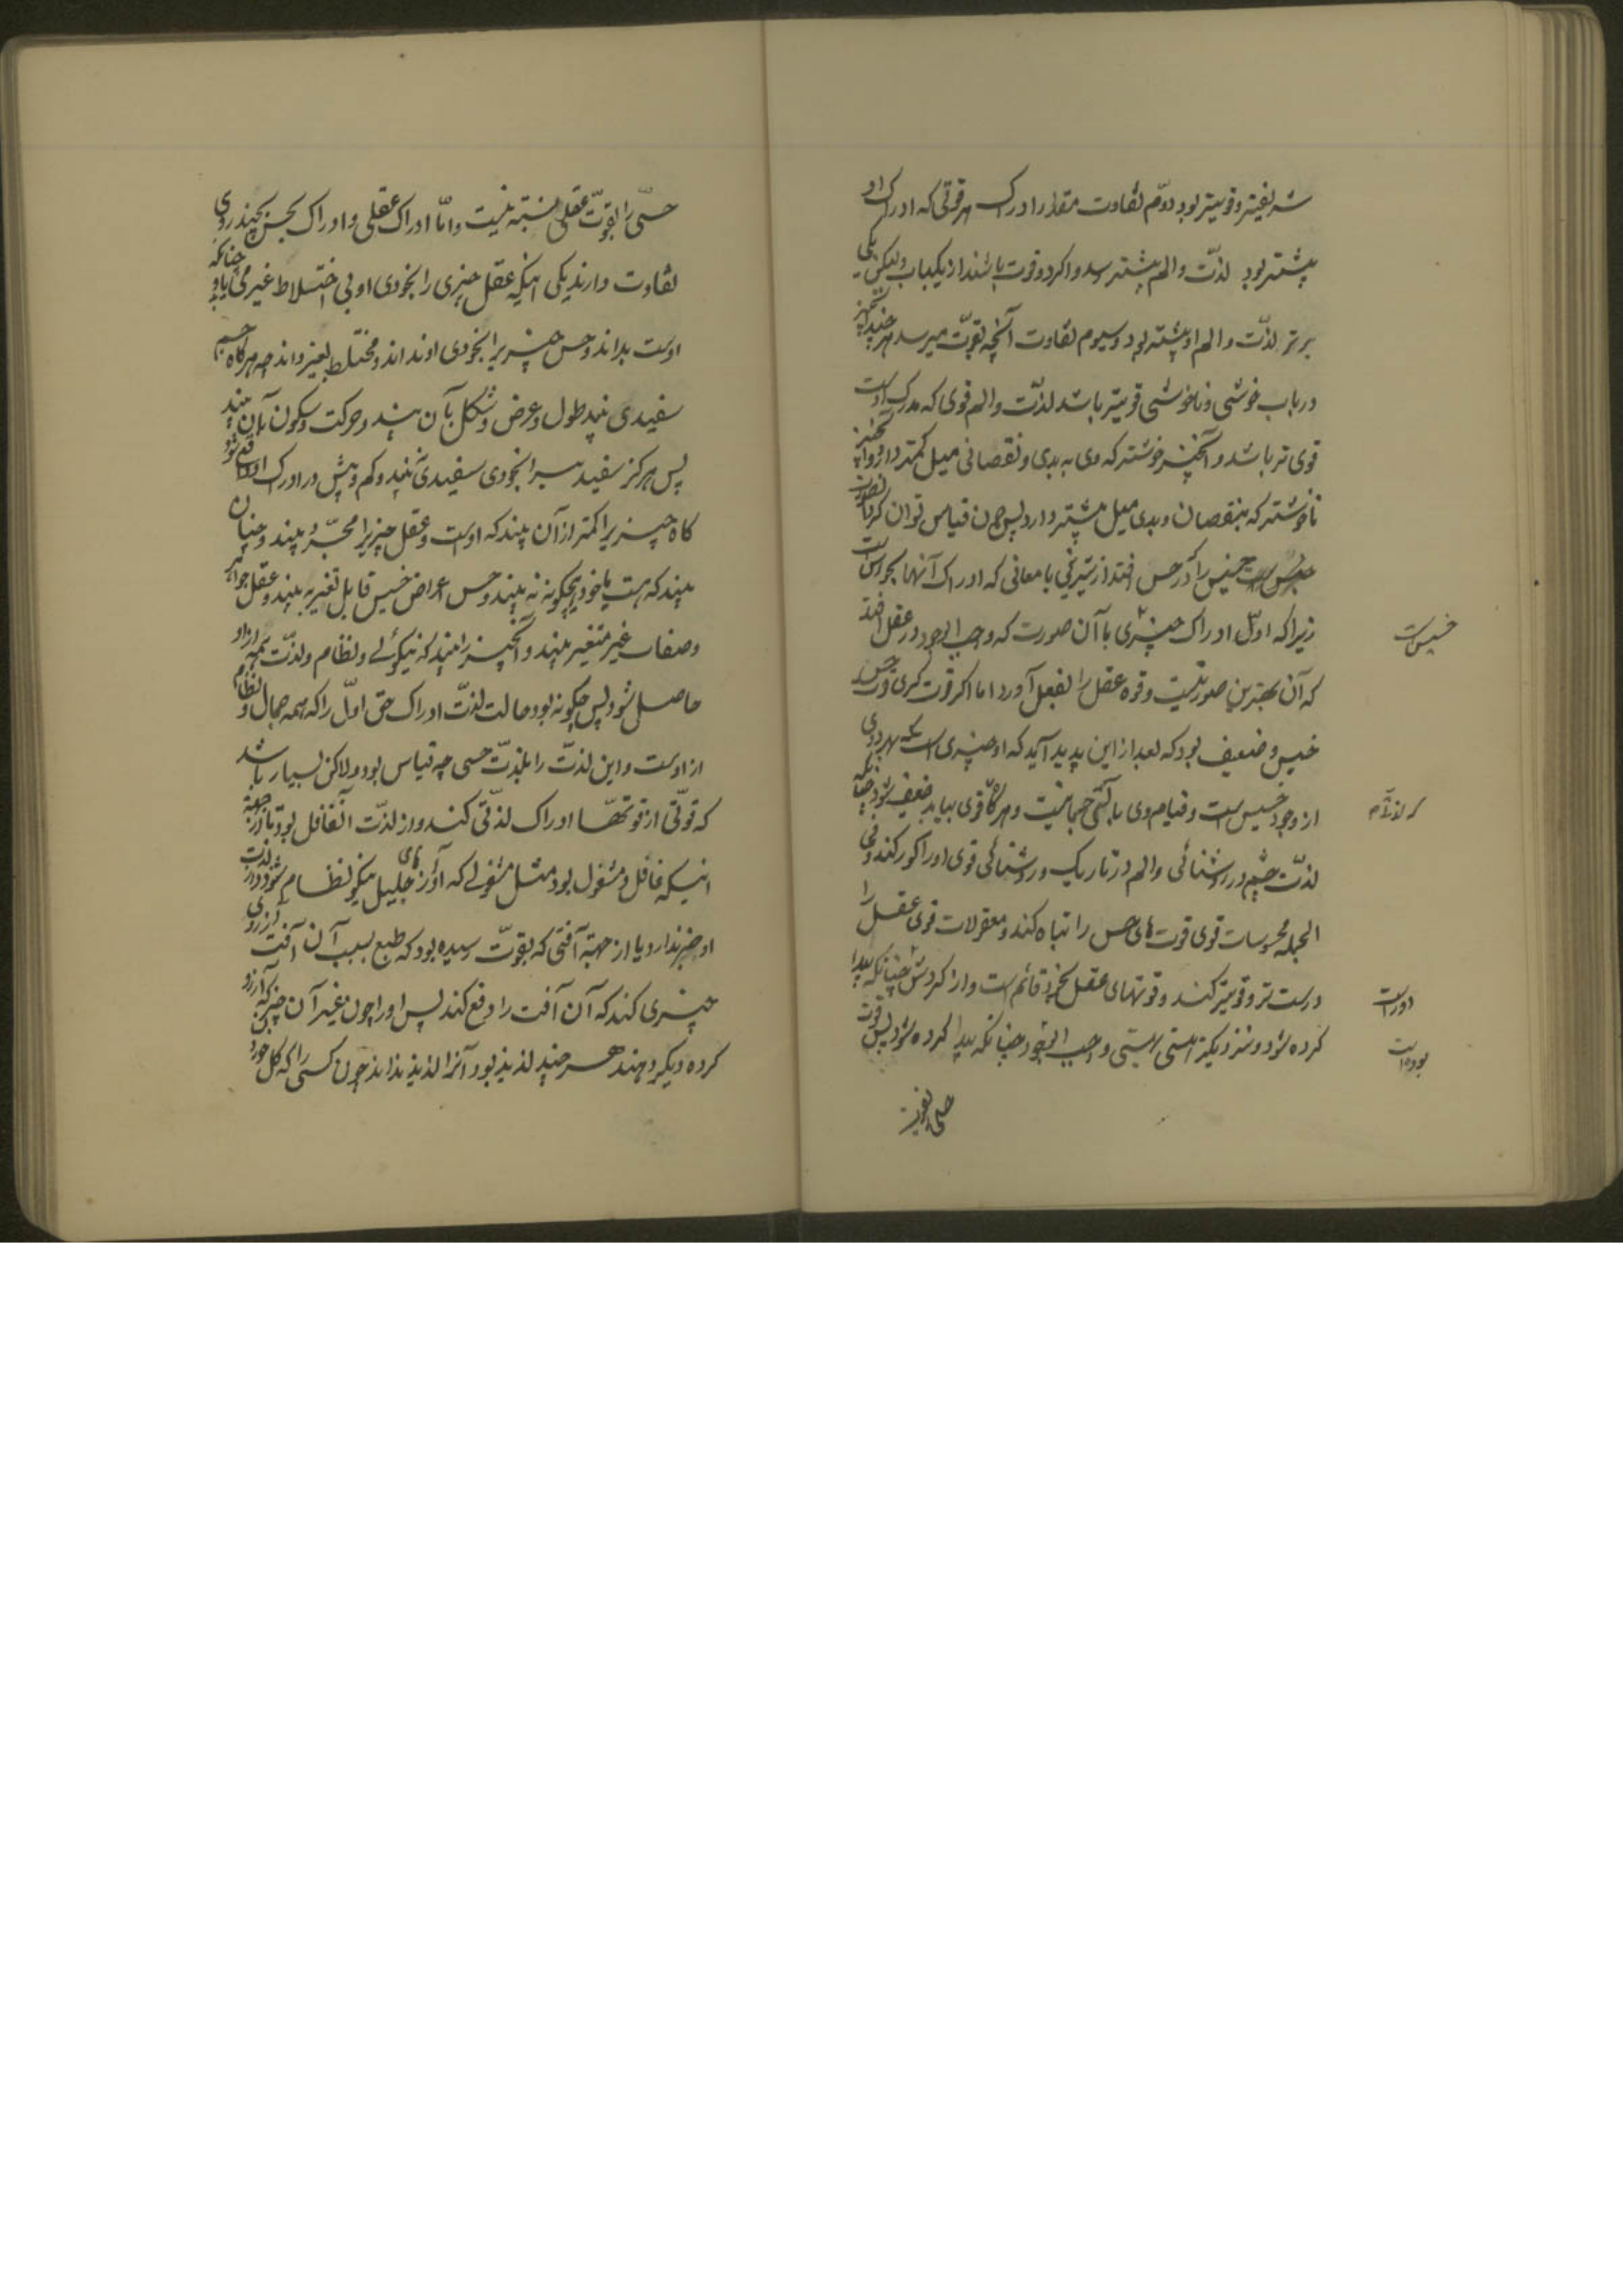 شریفتر و قویتر بود دوّم تفاوت مقدار ادراک هر قوتی که ادراک او
بیشتر بود لذّت و الم بیشتر رسد و اگر دو قوت باشند از یکباب ولیکن یکی
برتر لذّت و الم او بیشتر بود و سیوم تفاوت آنچه بقوّت میرسد هر چند آنچیز
در باب خوشی و ناخوشی قویتر باشد لذّت و الم قوی که مدرک اوست
قوی تر باشد و آنچیز خوشتر که وی به بدی و نقصانی میل کمتر دارد و آنچیز
ناخوشتر که بنقصان و بدی میل بیشتر دارد پس چون قیاس توان کرد آنصورت
خسیس را که در حس افتد از شیرینی با معانی که ادراک آنها بحواس است
زیرا که اوّل ادراک چیزی با آن صورت که واجب الوجود در عقل افتد
که آن بهترین صورتیست و قوه عقل را بفعل آورد اما اگر قوت گیری قوت حسی
خسیس و ضعیف بود که بعد از این پدید آید که او چیزی است که بهره وی
از وجود خسیس است و قیام وی بآلتی جسمانیست و هرگاه قوی بیابد ضعیف شود چنانکه
لذّت چشم در روشنائی و الم در تاریک و روشنائی قوی او را کور کند و فی
الجمله محسوسات قوی قوت های حس را تباه کند و معقولات قوی عقل را
درست تر و قویتر کند و قوتهای عقل بخود قائم است و از گردش چنانکه پیدا
کرده شود و نزدیکتر هستی بهستی واجب الوجود چنانکه پیدا کرده شود پس قوت
حسی را بقوّت
خسیس است
دور است
بوده است
حسّی را بقوّت عقلی نسبت نیست و امّا ادراک عقلی و ادراک بحس بچند روی
تفاوت دارند یکی اینکه عقل چیزی را بخودی او بی اختلاط غیر می یابد چنانکه
اوست بداند و حس چیزی را بخودی او نداند و مختلط بغیر داند چه هرگاه چشم
سفیدی بیند طول و عرض و شکل با آن بیند و حرکت و سکون با آن بیند
پس هرگز سفیدی را بخودی سفیدی نبیند و کم و بیش در ادراک او واقع شود
گاه چیزی را کمتر از آن بیند که اوست و عقل چیز را مجرّد بیند و چنان
بیند که هست یا خود هیچگونه نه بیند و حس اعراض خسیس قابل تغییر بیند و عقل جواهر
و صفات غیر متغیر بیند و آنچیز را بیند که نیکوئی و نظام و لذّت همه از او
حاصل شود پس چگونه بود حالت لذّت ادراک حق اوّل را که همه جمال و نظام
از اوست و این لذّت را بلذّت حسی چه قیاس بود ولاکن بسیار باشد
که قوّتی از قوتها ادراک لذّتی کند و از لذّت آن غافل بود یا از جهة
اینکه غافل و مشغول بود مثل مشغولی که آواز های جلیل نیکو نظام شنود و از لذت
او خبر ندارد یا از جهة آفتی که بقوّت رسیده بود که طبع بسبب آن آفت آرزوی
چیزی کند که آن آفت را دفع کند پس او را چون غیر آن چیز که آرزو
کرده دیگر دهند هر چند لذیذ بود آنرا لذیذ نداند چون کسی را که گل خوردن